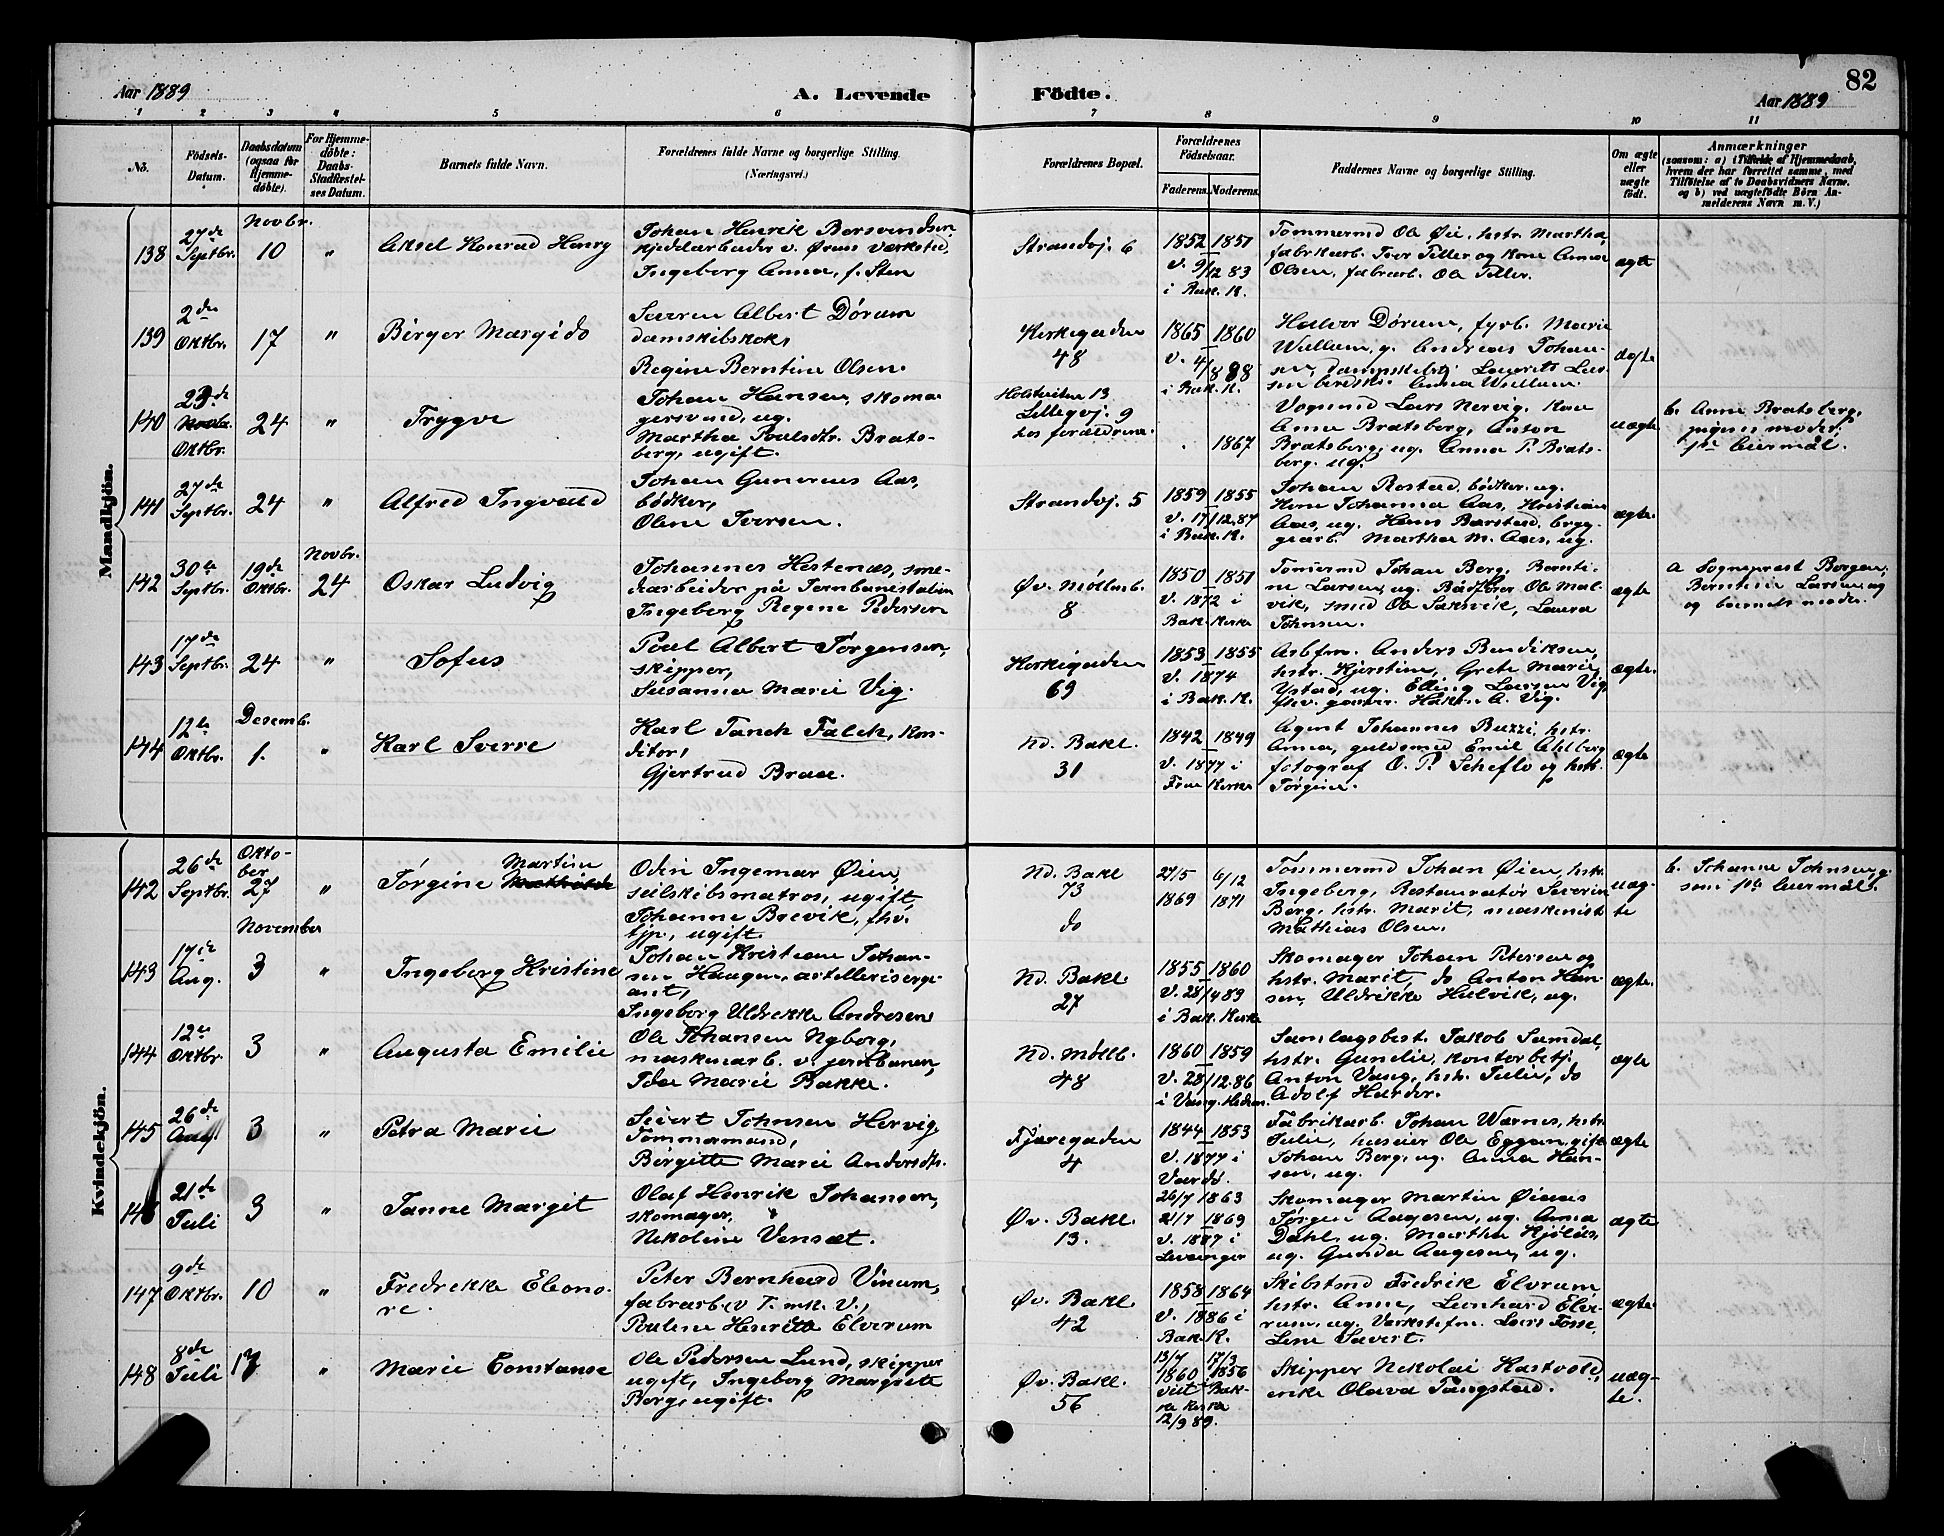 82
Aar 1889
A. Levende
Födte.
Aar 1889
1 2 3 4 5 6 7 8 9 10 11
No.
Födsels-
Datum.
Daabsdatum
(ogsaa for
Hjemme-
døbte).
For Hjemme-
døbte:
Daabs-
Stadfæstel-
ses Datum.
Barnets fulde Navn.
Forældrenes fulde Navne og borgerlige Stilling.
(Næringsvei.)
Forældrenes Bopæl.
Forældrenes
Födselsaar.
Faderens. Moderens.
Faddernes Navne og borgerlige Stilling.
Om ægte
eller
uægte
födt.
Anmærkninger
(saasom: a) i Tilfælde af Hjemmedaab,
hvem der har forrettet samme, med
Tilföielse af to Daabsvidners Navne,
og b) ved uægtefödte Börn An-
melderens Navn m. V.)
Mandkjön.
138
27de
Septbr.
Novbr.
10
"
Aksel Konrad Henry
Johan Henrik Borsvendsen
kjedelarbeider v. Ørens værksted,
Ingeborg Anna, f. Sten
Strandvj. 6
1852 1851
v. 9/12 83
i Bak. K.
Tømmermd Ole Øie, hstr. Martha,
fabrikarb. Iver Tiller og kone Anna
Olsen, fabrarb. Ole Tiller.
ægte
139
2den
Oktbr.
17
"
Birger Margido
Søren Albert Dørum
damskibskok,
Regine Berntine Olsen.
Kirkegaden
48
1865 1860
v. 4/8 88
i Bak. K.
Halvor Dørum, fyrb. Marie
Wullum, g. Andreas Johan-
sen, dampskibsf. Laurits Las-
sen Anna Wullum.
ægte
140
23de
Oktbr.
24
"
Trygve
Johan Hansen, skoma-
gersvend, ug.
Martha Poulsdtr. Brats-
berg, ugift.
Lillegvj. 9
hos forældrene.
1867
Vognmd Lars Hervig, kone
Anna Bratsberg, Anton
Bratsberg, ug. Anna P. Brats-
berg, ug.
uægte
b. Anne Bratsberg,
pigens moder.
1ste leiermål.
141
27de
Septbr.
24
"
Alfred Ingvald
Johan Gunerius Aas,
bödker,
Oline Iversen.
Strandvj. 5
1859 1855
v. 17/12.87
i Bak. K.
Johan Rostad, bödker, ug.
Kone Johanna Aas, Kristian
Aas, ug. Hans Barstad, bryg-
gearb. Martha M. Aas, ug.
ægte.
142
30te
Septbr.
19de
Oktbr.
Novbr.
24
Oskar Ludvig
Johannes Hestenæs, sme-
dearbeider på Jernbanestation
Ingeborg Regine Pedersen
Øv. Møllenb.
8
1850 1851
v. 1872 i
Bak. Kirke
Tømermd Johan Berg, Bernti-
ne Larsen, ug. Bådfører Ole Mal-
vik, smed Ole Saksvik, Laura
Johnsen.
ægte
a Sogneprest Borgen,
Berntine Larsen og
og barnets moder.
143
17de
Septbr.
24
"
Sofus
Poul Albert Jørgensen,
skipper,
Susanna Marie Vig.
Kirkegaden
69
1853 1855
v. 1874
i Bak. K.
Arbfm. Anders Bendiksen,
hstr. Kjerstine, Grete Marie
Ystad, ug. Elling Larsen Vig,
fhv. Håkon A. Vig.
ægte.
144
12te
Oktbr.
Desemb.
1.
"
Karl Sverre
Karl Tanch Falck, kon-
ditor,
Gjertrud Braa.
Nd. Bakl.
31
1842 1849
v. 1877 i
Frue Kirke
Agent Johannes Buzzi, hstr.
Anna, guldsmed Emil Ahlberg
fotograf O. P. Scheflo og hstr.
Jørgine.
ægte
Kvindekjön.
142
26de
Septbr.
Okto-
ber
27
"
Jørgine Martine Mathilde
Odin Ingemar Øien,
seilskibsmatros, ugift,
Johanne Brevik, fhv.
tjp., ugift.
Nd. Bakl
73
do
27/5 6/12
1869 1871
Tømmermd Johan Øien, hstr.
Ingeborg, Restauratør Severin
Berg, hstr. Marit, maskinist
Mathias Olsen.
uæg-
te
b. Johanne Johnsen,
som 1ste leiermål.
143
17de
Aug.
November
3
"
Ingeborg Kristine
Johan Kristian Johan-
sen Haugen, artellerisrge-
ant,
Ingeborg Uldrikke Andresen
Nd. Bakl
27
1855 1860
v. 28/4 89
i Bak. Kirke
Skomager Johan Petersen og
hstr. Marit, do Anton Han-
sen, Uldrikke Hulvik, ug.
ægte.
144
12te
Oktbr.
3
"
Augusta Emilie
Ole Johansen Nyborg,
maskinarb. v. jernbanen,
Ida Marie Bakke.
Nd. Møllb.
48
1860 1859
v. 28/12.86
i Vang. Hedem.
Samlagsbest. Jakob Sumdal,
hstr. Gunelie, kontorbetj.
Anton Vang, hstr. Julie, do
Adolf Harder.
ægte
145
26de
Aug.
3
"
Petra Marie
Sivert Johnsen Hervig,
Tømmermand,
Birgitte Marie Andersdtr.
Fjæregaden
4
1844 1853
v. 1877 i
Vardø.
Fabrikarb. Johan Wærnes, hstr.
Julie, huseier Ole Eggan, gift
Johan Berg, ug. Anna Han-
sen, ug.
ægte
146
21de
Juli
3
"
Janne Margit
Olaf Henrik Johansen,
skomager,
Nikoline Vensæt.
Øv. Bakl.
13.
26/7 1863
21/7 1869
v. 1887 i
Levanger
Skomager Martin Øiaas
Jørgen Aagesen, ug. Anna
Dahl, ug. Martha Hjølås,
ug. Gunda Aagesen, ug.
ægte
147
9de
Oktbr.
10
"
Fredrikke Elono-
re.
Peter Bernhard Vinum,
fabrarb. v T. mk. V.,
Pauline Henritte Elverum
Øv. Bakl.
42
1858 1864
v. 1886 i
Bak. K.
Skibstmd Fredrik Elvrum
hstr. Anne, Leonhard Elve-
rum, ug. Værkstefm. Lars Fosse,
Line Sivert.
ægte.
148
8de
Juli
"
Marie Constanse
Ole Pedersen Lund, skipper
ugift, Ingeborg Margrete
Berg, ugift.
Øv. Bakl.
56
13/7 17/3
1860 1856
viet i Bak-
ke Kirke
12/9 89.
Skipper Nikolai Hastvold,
enke Olava Tangstad.
uæg-
te.